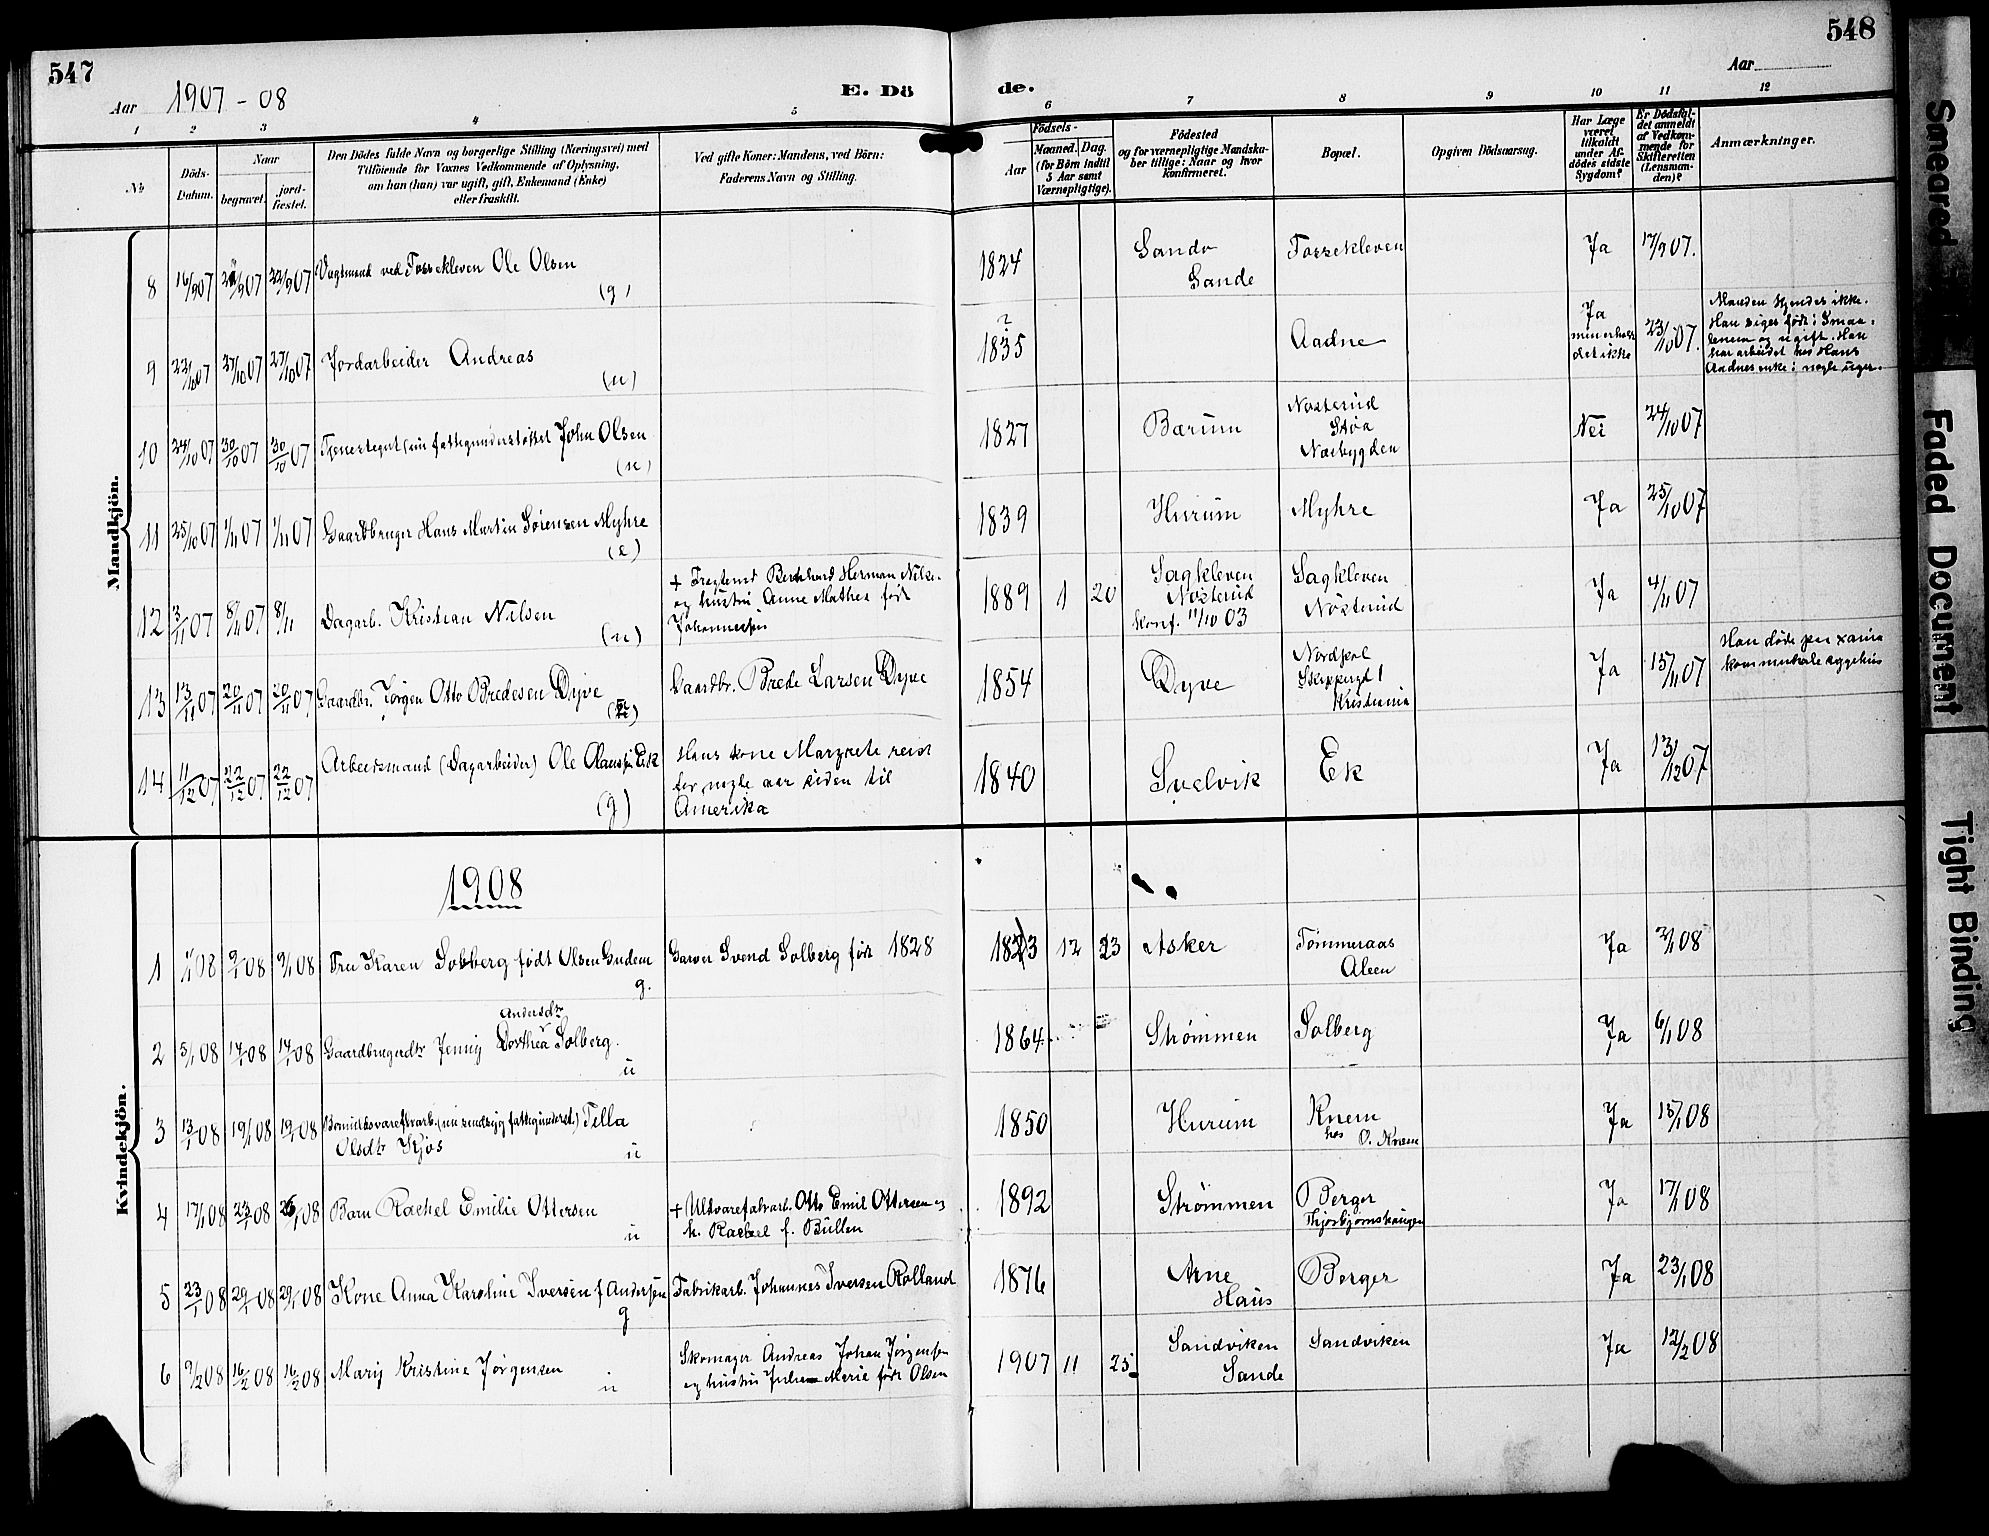 547
548
Aar 1907 - 08
E. Dö
de.
Aar
1 2 3 4 5 6 7 8 9 10 11 12
No
Döds-Datum.
Naar
begravet.
jord-fæstet.
Den Dödes fulde Navn og borgerlige Stilling (Næringsvei) med
Tilföiende for Voxnes Vedkommende af Oplysning,
om han (hun) var ugift, gift, Enkemand (Enke)
eller fraskilt.
Ved gifte Koner: Mandens, ved Börn:
Faderens Navn og Stilling.
Födsels-
Aar
Maaned. Dag.
(for Börn indtil
5 Aar samt
Værnepligtige).
Födested
og for værnepligtige Mandska-
ber tillige: Naar og hvor
konfirmeret.
Bopæl.
Opgiven Dödsaarsag.
Har Læge
været
tilkaldt
under Af-
dödes sidste
Sygdom?
Er Dödsfal-
det anmeldt
af Vedkom-
mende for
Skifteretten
(Lensman-
den)?
Anmærkninger.
Mandkjön.
8 16/9 07 22/9 07 22/9 07 Vagtmand ved Fossekleven Ole Olsen (g) 1824 Sande Sande Fossekleven Ja 17/9 07.
9 22/10 07 27/10 07 27/10 07 Jordarbeider Andreas (u) ? 1835 Aadne Ja men erholdt det ikke 23/10 07. Manden kjendes ikke.
Han siges født i Smaa-
lenene og ugift. Han
har arbeidet hos Hans
Aadnes enke i nogle uger.
10 24/10 07 30/10 07 30/10 07 Tjenestegut (nu fattigunderstøttet) John Olsen (u) 1827 Bærum Nøsterud Støa Næsbygden Nei 24/10 07
11 25/10 07 1/11 07 1/11 07 Gaardbruger Hans Martin Sørensen Myhre (e) 1839 Hurum Myhre Ja 25/10 07
12 3/11 07 8/11 07 8/11 Dagarb. Kristian Nilsen (u) + Bernhard Herman Nilsen
og hustru Anne Mathea født
Johannesen 1889 1 20 Sagkleven Nøsterud konf. 11/10 03 Sagkleven Nøsterud Ja 4/11 07
13 13/11 07 20/11 07 20/11 07 Gaardbr. Jørgen Otto Bredesen Dyve Gaardbr. Brede Larsen Dyve 1854 Dyve Nordpol Skippergt 1 Kristiania Ja 15/11 07 Han døde paa Xania
kommunale sygehus
14 11/12 07 22/12 07 22/12 07 Arbeidsmand (Dagarbeider) Ole Olaussen Ek (g) Hans kone Margrete reist
for nogle aar siden til
Amerika 1840 Svelvik Ek Ja 13/12 07
Kvindekjön.
1908
1 1/1 08 9/1 08 9/1 08 Fru Karen Solberg født Olsen Gudem g. Garver Svend Solberg født 1828 1823 12 23 Asker Tømmeraas Aleen Ja 2/1 08
2 5/1 08 14/1 08 14/1 08 Gaardbrugerdtr Jenny Andersdtr Dorthea Solberg. u 1864 Strømmen Solberg Ja 6/1 08
3 13/1 08 19/1 08 19/1 08 Bomuldsvarefbrarb. (nu sindssyg fattigunderst.) Tilla
Olsdtr Kjos u 1850 Hurum Knem hos O. Knem Ja 15/1 08
4 17/1 08 23/1 08 26/1 08 Barn Rachel Emilie Ottersen u + Uldvarefabrarb. Otto Emil Ottersen og
h. Rachel f. Bullen 1892 Strømmen Berger Thjosbjørnshaugen Ja 17/1 08
5 23/1 08 29/1 08 29/1 08 Kone Anna Karoline Iversen f Andersen g Fabrikarb. Johannes Iversen Rolland 1876 Arne Haus Berger Ja 23/1 08
6 9/2 08 16/2 08 16/2 08 Mary Kristine Jørgensen u Skomager Andreas Johan Jørgensen
og hustru Julie Marie født Olsen 1907 11 25 Sandviken Sande Sandviken Ja 12/2 08
Smeared
Faded Document
Tight Binding